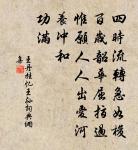 四時流轉急如梭
百歲韶華屈指過
惟願人人出愛河
養沖和
功滿
王丹桂忆王孙詞典網